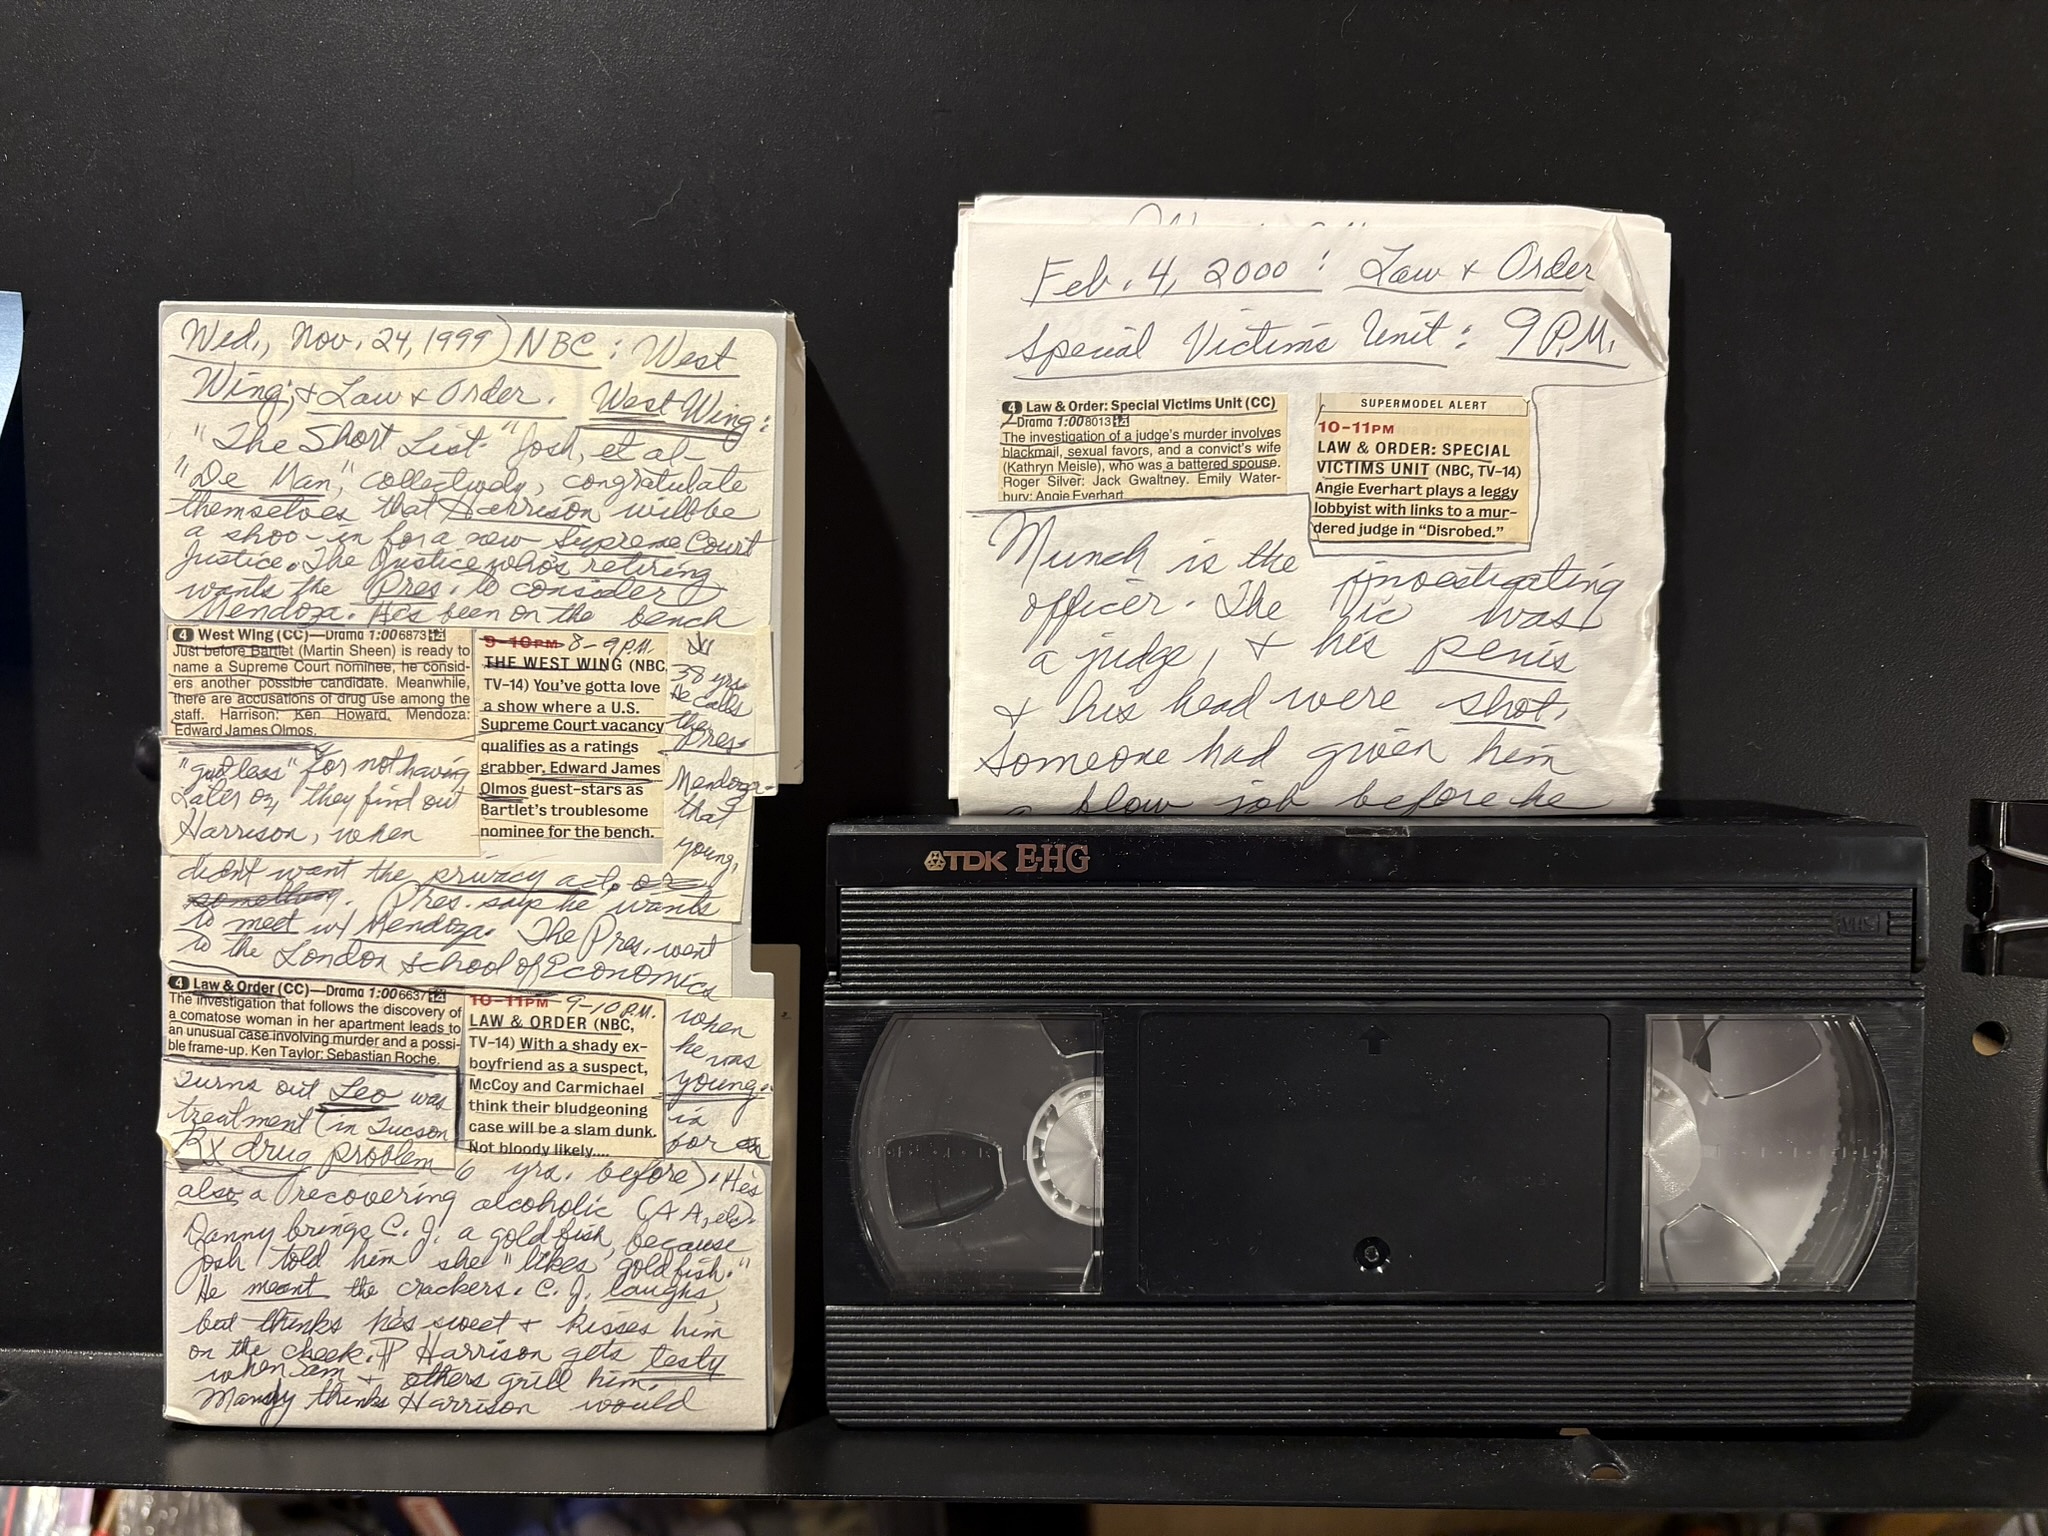 Wed., Nov. 24, 1999) NBC: West
Wing; & Law & Order. West Wing:
"The Short List." Josh, et al-
"De Man", collectively, congratulate
themselves that Harrison will be
a shoo-in for a new Supreme Court
Justice. The Justice who's retiring
wants the Pres. to consider
Mendoza. He's been on the bench
4 West Wing (CC)—Drama 1:00 6873
Just before Bartlet (Martin Sheen) is ready to
name a Supreme Court nominee, he consid-
ers another possible candidate. Meanwhile,
there are accusations of drug use among the
staff. Harrison: Ken Howard. Mendoza:
Edward James Olmos.
9-10PM 8-9 P.M.
THE WEST WING (NBC,
TV-14) You've gotta love
a show where a U.S.
Supreme Court vacancy
qualifies as a ratings
grabber. Edward James
Olmos guest-stars as
Bartlet's troublesome
nominee for the bench.
38 yrs.
He calls
the
Pres.
"gutless" for not having
Later on, they find out
Harrison, when
Mendoza-
that
young,
didn't want the privacy act, or
something. Pres. says he wants
to meet w/ Mendoza. The Pres. went
to the London School of Economics
4 Law & Order (CC)—Drama 1:00 6637
The investigation that follows the discovery of
a comatose woman in her apartment leads to
an unusual case involving murder and a possi-
ble frame-up. Ken Taylor: Sebastian Roche.
10-11PM 9-10 P.M.
LAW & ORDER (NBC,
TV-14) With a shady ex-
boyfriend as a suspect,
McCoy and Carmichael
think their bludgeoning
case will be a slam dunk.
Not bloody likely....
when
he was
young.
in
for
Turns out Leo was
treatment (in Tucson
Rx drug problem 6 yrs. before). He's
also a recovering alcoholic (AA, etc).
Danny brings C.J. a goldfish, because
Josh told him she "likes goldfish."
He meant the crackers. C.J. laughs,
but thinks he's sweet & kisses him
on the cheek. ¶ Harrison gets testy
when Sam & others grill him.
Mandy thinks Harrison would
Feb. 4, 2000: Law & Order
Special Victims Unit: 9 P.M.
4 Law & Order: Special Victims Unit (CC)
—Drama 1:00 8013
The investigation of a judge's murder involves
blackmail, sexual favors, and a convict's wife
(Kathryn Meisle), who was a battered spouse.
Roger Silver: Jack Gwaltney. Emily Water-
bury: Angie Everhart
SUPERMODEL ALERT
10-11PM
LAW & ORDER: SPECIAL
VICTIMS UNIT (NBC, TV-14)
Angie Everhart plays a leggy
lobbyist with links to a mur-
dered judge in "Disrobed."
Munch is the investigating
officer. The vic was
a judge, & his penis
& his head were shot.
Someone had given him
a blow job before he
TDK E-HG
VHS